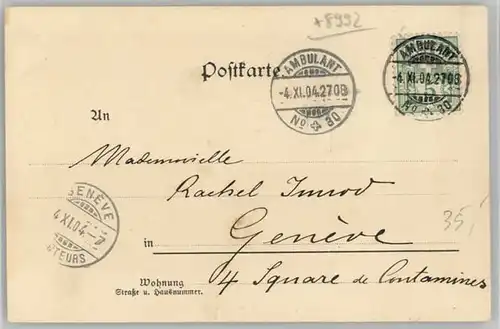 +8992
Postkarte
AMBULANT
-4.XI.04.2708
No 30
AMBULANT
-4.XI.04.2708
No 30
5
An
Mademoiselle
Rachel
GENÈVE
4 XI.04.-7
CTEURS
35,-
in Genève
Wohnung
Straße u. Hausnummer.
4 Square de Contamines